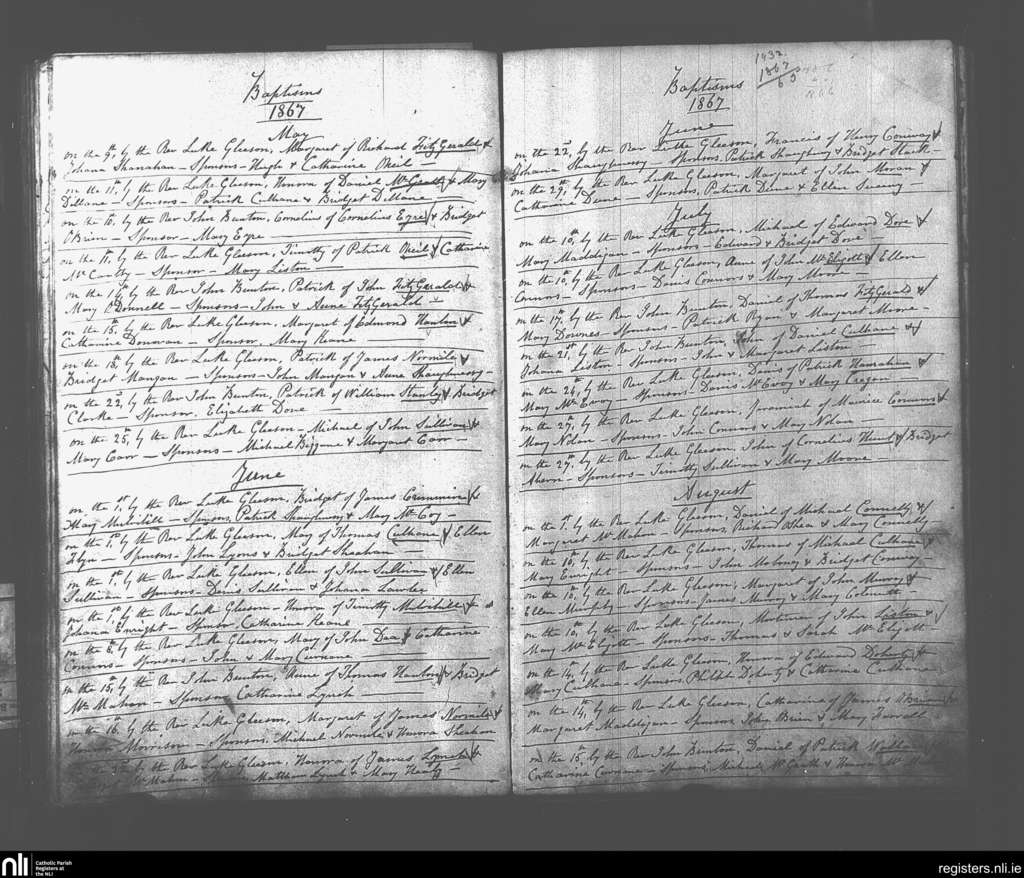 Baptisms
1867
May
on the 9th, by the Rev Luke Gleeson, Margaret of Richard FitzGerald &
Johana Shanahan - Sponsors - Hugh & Catharine Neil -
on the 11th, by the Rev Luke Gleeson, Honora of Daniel & Mary
Dillane - Sponsors - Patrick Culhane & Bridget Dillane -
on the by the Rev John Bunton, Cornelius of Cornelius Eyre & Bridget
OBrien - Sponsor - Mary Eyre
on the 11, by the Rev Luke Gleeson, Timothy of Patrick Neil & Catharine
McCarthy - Sponsor - Mary Liston -
on the by the Rev John Bunton, Patrick of John FitzGerald &
Mary O'Donnell - Sponsors - John & Anne FitzGerald -
on the 15th, by the Rev Luke Gleeson, Margaret of Edmond Hanlon &
Catharine Donovan - Sponsor, Mary Keane
on the 18th, by the Rev Luke Gleeson, Patrick of James Normile &
Bridget Mangan - Sponsors - John Mangan & Anne Shaughnessy -
on the 22d, by the Rev John Bunton, Patrick of William & Bridget
Clarke - Sponsor, Elizabeth Dore -
on the 25th, by the Rev Luke Gleeson - Michael of John Sullivan &
Mary Carr - Sponsors - Michael & Margaret Carr -
June
on the 1st, by the Rev Luke Gleeson, Bridget of James &
Mary Mulvihill - Sponsors, Patrick Shaughnessy & Mary McCoy -
on the 1st, by the Rev Luke Gleeson, Mary of Thomas Culhane & Ellen
- Sponsors - John Lyons & Bridget Sheahan -
on the 1st, by the Rev Luke Gleeson, Ellen of John Sullivan & Ellen
Sullivan - Sponsors - Denis Sullivan & Johana Lawlee
on the 1st, by the Rev Luke Gleeson - Honora of Timothy Mulvihill &
Johana Enright - Sponsor, Catharine Keane
on the 8th, by the Rev Luke Gleeson, Mary of John Daa & Catharine
Connors - Sponsors - John & Mary Curnane
on the 15th, by the Rev John Bunton, Anne of Thomas Hanlon & Bridget
McMahon - Sponsor Catharine Lynch
on the 16th, by the Rev Luke Gleeson, Margaret of James Normile &
Morrison - Sponsors, Michael Normile & Honora Sheahan
by the Rev Luke Gleeson, Honora of James Lynch &
McMahon - Matthew Lynch & Mary
1932
1867
65
Baptisms
1867
June
on the 22d, by the Rev Luke Gleeson, Francis of Henry Conway &
Johana Shaughnessy - Sponsors, Patrick Shaughnessy & Bridget
on the 29th, by the Rev Luke Gleeson, Margaret of John Moran &
Catharine Deene - Sponsors, Patrick Deene & Ellen
July
on the 10th, by the Rev Luke Gleeson, Michael of Edward Dore &
Mary Maddigan - Sponsors - Edward & Bridget Dore
on the 10, by the Rev Luke Gleeson, Anne of John McEligott & Ellen
Connors - Sponsors - Denis Connors & Mary Moore -
on the 17th, by the Rev John Bunton, Daniel of Thomas FitzGerald &
Mary Downes - Sponsors - Patrick Ryan & Margaret Moore -
on the 21st, by the Rev John Bunton, John of Daniel Culhane &
Johana Liston - Sponsors - John & Margaret Liston -
on the 24th, by the Rev Luke Gleeson, Denis of Patrick Hanrahan &
Mary McEvoy - Sponsors - Denis McEvoy & Mary
on the 27th, by the Rev Luke Gleeson, Jeremiah of Maurice Connors &
Mary Nolan - Sponsors - John Connors & May Nolan
on the 27th, by the Rev Luke Gleeson, John of Cornelius & Bridget
Ahern - Sponsors - Timothy Sullivan & Mary Moone -
August
on the 1st, by the Rev Luke Gleeson, Daniel of Michael Connelly &
Margaret McMahon - Sponsors, Richard OShea & Mary Connelly
on the 10th, by the Rev Luke Gleeson, Thomas of Michael Culhane &
Mary Enright - Sponsors - John Mahoney & Bridget Conway
on the 10, by the Rev Luke Gleeson, Margaret of John &
Ellen Murphy - Sponsors - James & Mary
on the 10th, by the Rev Luke Gleeson, Mortimer of John Liston &
Mary McEligott - Sponsors - Thomas & Sarah McEligott -
on the 14, by the Rev Luke Gleeson, Honora of Edward Doherty &
Mary Culhane - Sponsors, Doherty & Catharine Culhane
on the 14, by the Rev Luke Gleeson, Catharine of James Brien &
Margaret Maddigan - Sponsors John Brien & Mary
on the 15th, by the Rev John Bunton, Daniel of Patrick
Catharine Curnane - Sponsors, Michael McGrath & Honora
nli
Catholic Parish
Registers at
the NLI
registers.nli.ie